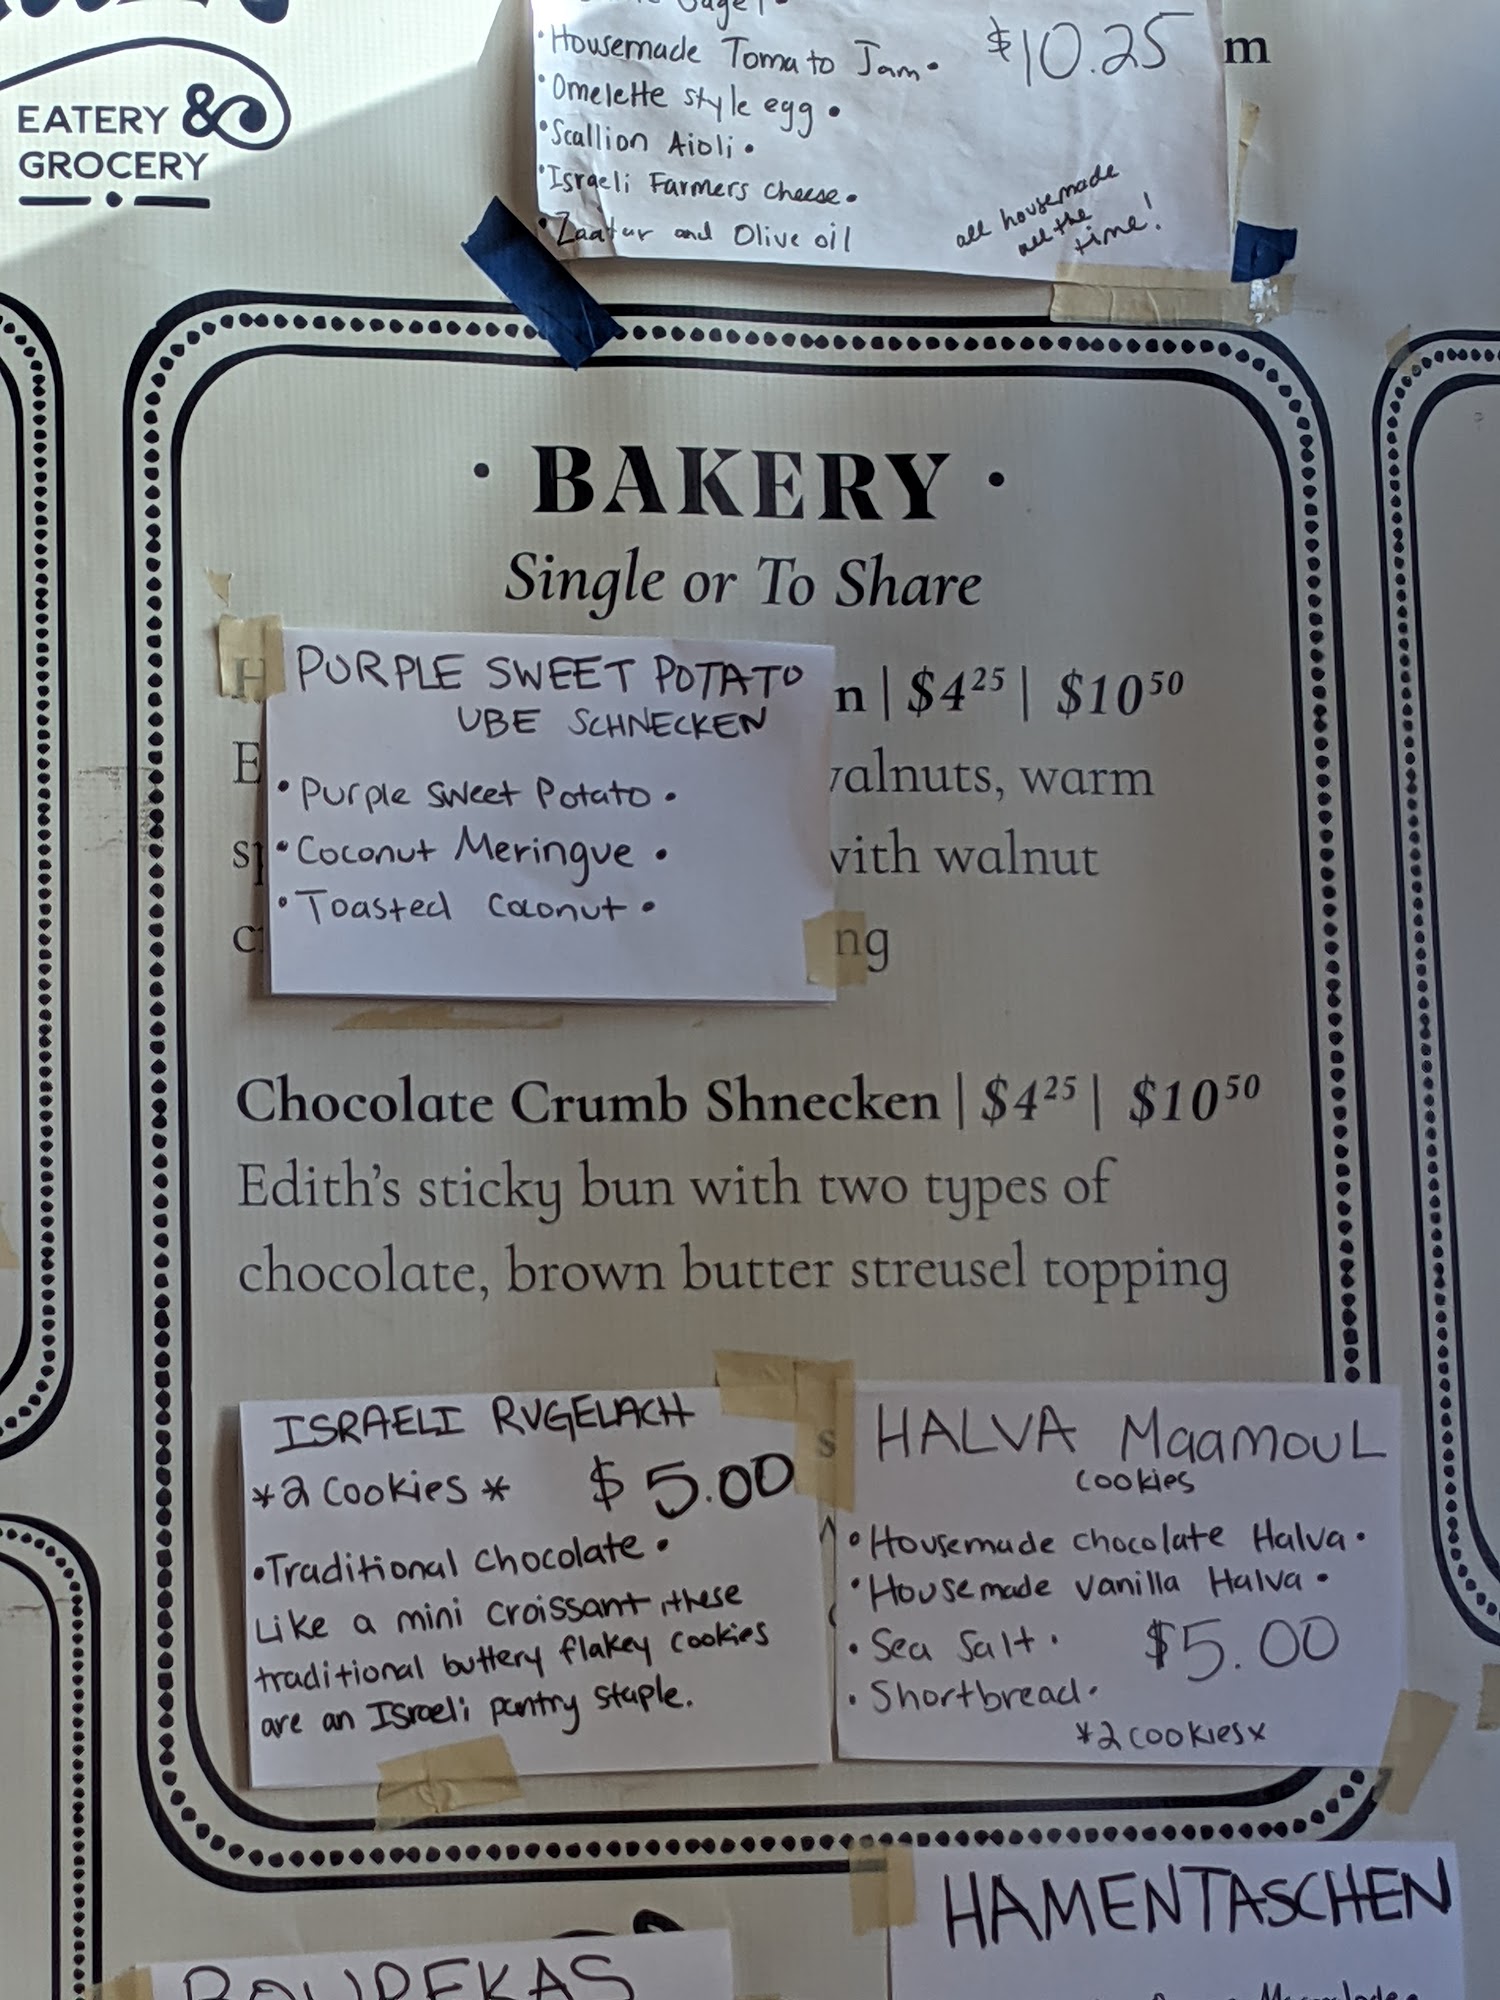 EATERY &
GROCERY
• Housemade Tomato Jam •
$10.25
m
• Omelette style egg •
• Scallion Aioli •
• Israeli Farmers cheese •
• Zaatar and Olive oil
all housemade
all the
time!
• BAKERY •
Single or To Share
PURPLE SWEET POTATO
UBE SCHNECKEN
• Purple Sweet Potato •
• Coconut Meringue •
• Toasted Coconut •
H
n | $4²⁵ | $10⁵⁰
E
alnuts, warm
with walnut
ng
Chocolate Crumb Shnecken | $4²⁵ | $10⁵⁰
Edith's sticky bun with two types of
chocolate, brown butter streusel topping
ISRAELI RUGELACH
*2 Cookies* $5.00
• Traditional Chocolate •
Like a mini croissant, these
traditional buttery flakey cookies
are an Israeli pantry staple.
s
HALVA MaamouL
cookies
• Housemade chocolate Halva •
• Housemade vanilla Halva •
• Sea Salt • $5.00
• Shortbread •
*2 cookies*
HAMENTASCHEN
BOUREKAS